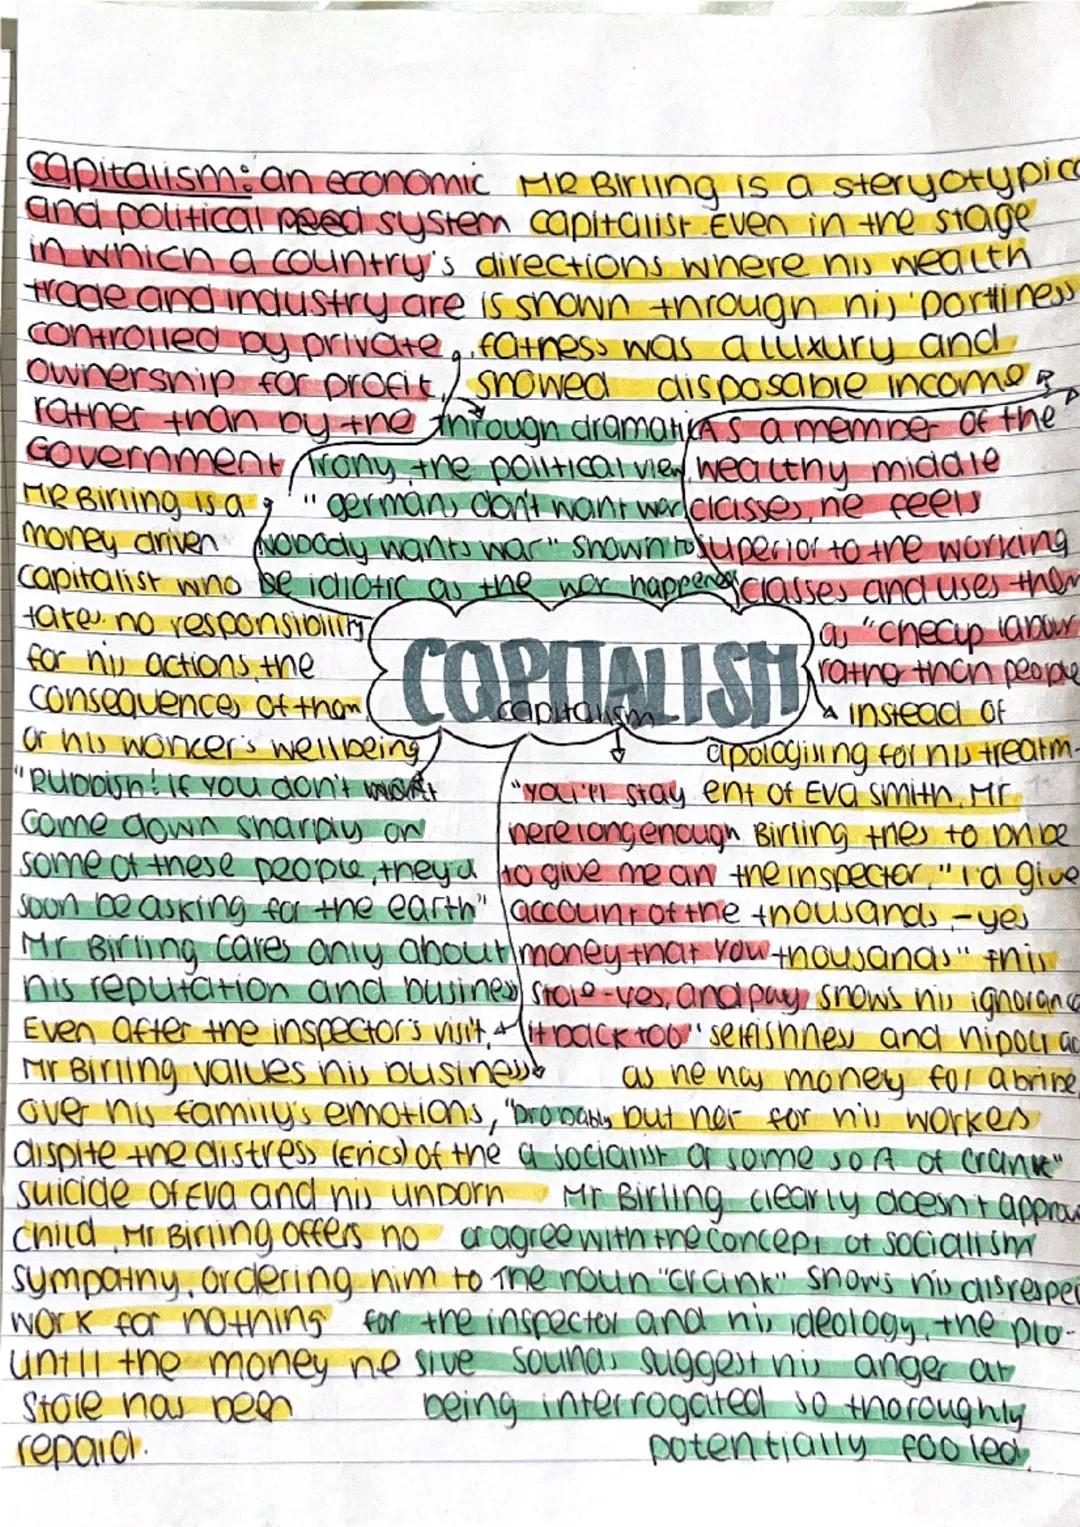 capitalism: an economic
and political need system
in which a country's
trade and industry are
controlled by private
ownership for profit,
rather than by the
Government
MR Birling is a steryotypica
capitalist. Even in the stage
directions where his wealth
is shown through his 'portliness
fatness was a luxury and
showed disposable income
Through dramatic
irony, the political view
"germans don't want war
Nobody wants war" shown to
be idiotic as the war happened
As a member of the
wealthy middle
classes, he feels
superior to the working
classes and uses them
as "cheap labour
rather than people
MR Birling is a
money driven
capitalist who
takes no responsibility
for his actions, the
consequences of them
or his worker's wellbeing
COPITALISM
capitalism
"Rubbish! If you don't
come down sharply on
some of these people, they'd
soon be asking for the earth"
Mr Birling cares only about
his reputation and business
"you'll stay
here long enough
to give me an
account of the
money that you
stole-yes, and pay
it back too"
instead of
apologising for his treatm-
ent of Eva smith, Mr
Birling tries to bribe
the inspector, "I'd give
thousands, -yes
thousands" this
shows his ignoranc
selfishness and hipocrac
as he has money for a bribe
but not for his workers
Even after the inspector's visit,
Mr Birling values his business
over his family's emotions,
dispite the distress (Erics) of the
suicide of Eva and his unborn
child, Mr Birling offers no
sympathy, ordering him to
work for nothing
untill the money he
stole has been
repaid.
"probably
a socialist or some sort of crank"
Mr Birling clearly doesn't approv
or agree with the concept of sociallism
The noun "crank" shows his disrespec
for the inspector and his ideology, the plo-
sive sounds suggest his anger at
being interrogated so thoroughly
potentially fooled.